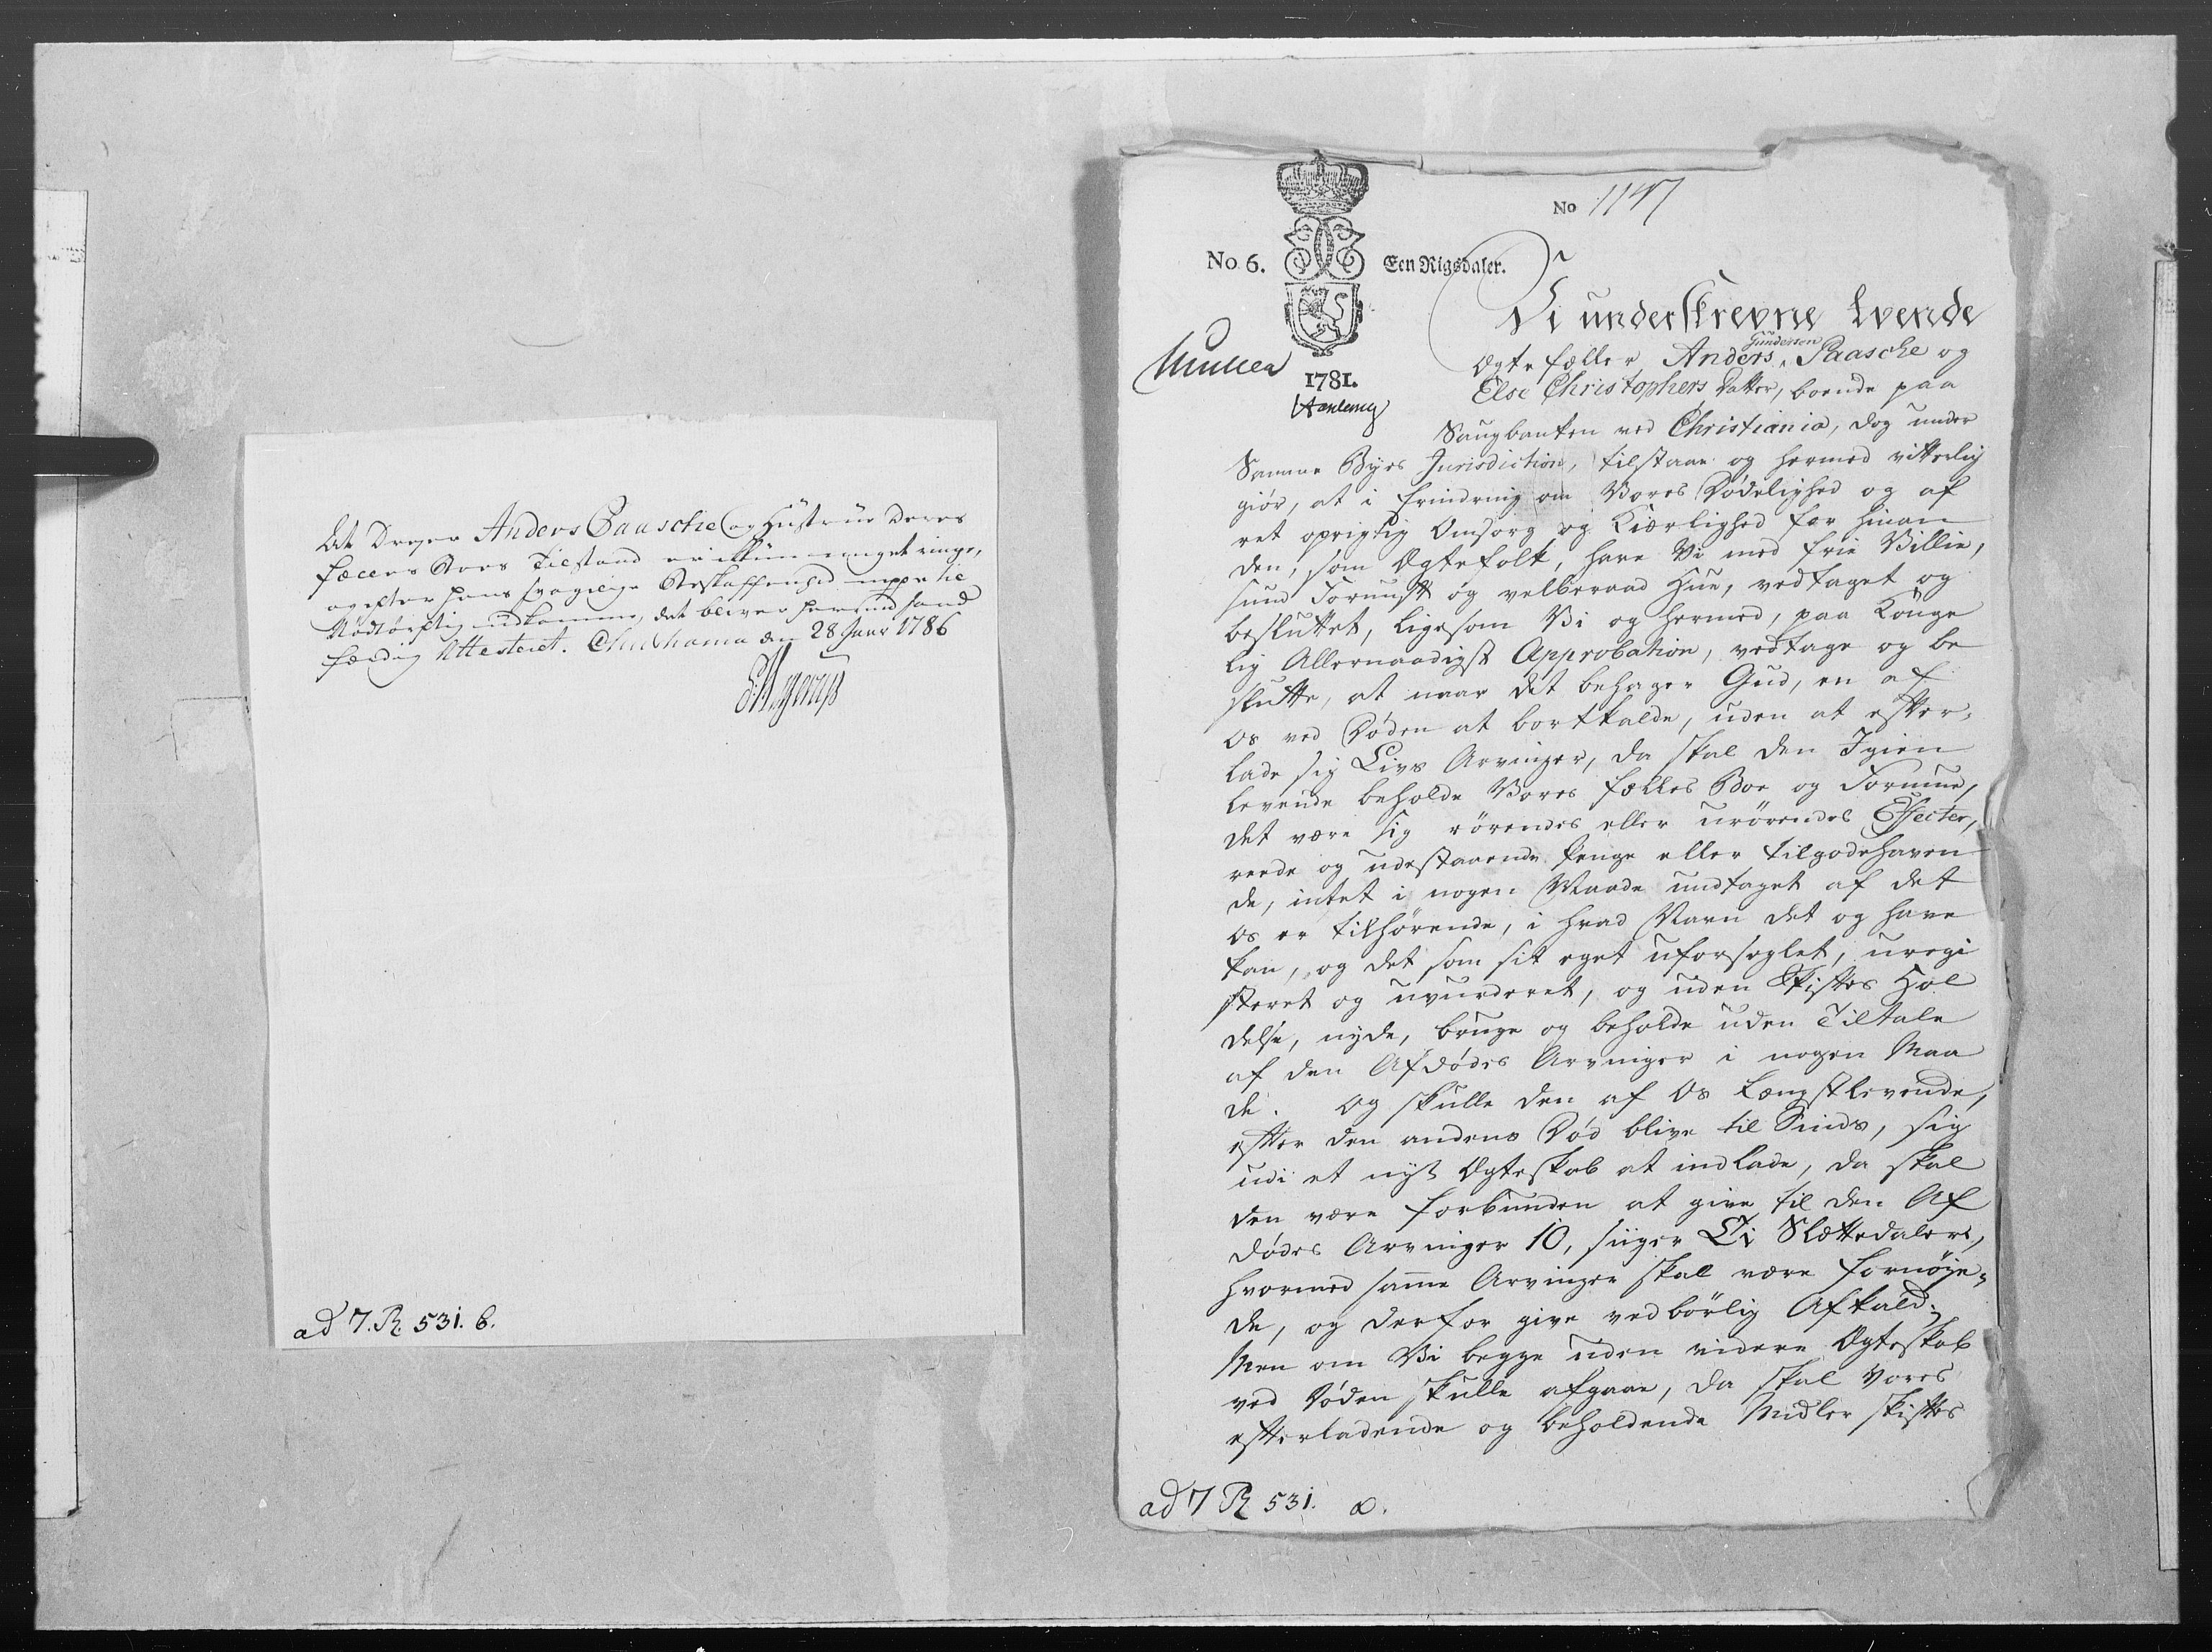 At Dreyer Anders Paasche og Hustrue Deres
fælles Boes Tilstand er ikkun meget ringe,
og efter hans svagelige Beskaffenhed neppe til
Nødtørftig udkomme, det bliver herved sand
færdig Attesteret. Christiania den 28 Janr 1786
ad 7. R. 531. b.
No 1147
No. 6. Een Rigsdaler.
1781.
Vi underskrevne tvende
Ægtefæller Anders Gundersen Paasche og
Else Christophers Datter, boende paa
Saugbanken ved Christiania, dog under
Samme Byes Jurisdiction, tilstaae og hermed vitterlig
giør, at i Erindring om Vores Dødelighed og af
ret oprigtig Omsorg og Kiærlighed for hinan
den, som Ægtefolk, have Vi med frie Villie,
sund Fornuft og velberaad Hue, vedtaget og
besluttet, ligesom Vi og hermed, paa Konge
lig Allernaadigst Approbation, vedtage og be
slutte, at naar det behager Gud, en af
os ved Døden at bortkalde, uden at efter-
lade sig Livs Arvinger, da skal den Igien
levende beholde Vores fælles Boe og Formue,
det være sig rørendes eller urørendes Effecter,
reede og udestaaende Penge eller tilgodehaven
de, intet i nogen Maade undtaget af det
os er tilhørende, i hvad Navn det og have
kan, og det som sit eget uforseglet, uregi
streret og uvurderet, og uden Skiftes Hol
delse, nyde, bruge og beholde uden Tiltale
af den Afdødes Arvinger i nogen Maa
de. Og skulle den af Os Længstlevende,
efter den andens Død blive til Sinds, sig
udi et nyt Ægteskab at indlade, da skal
den være forbunden at give til den Af
dødes Arvinger 10, siiger Ti Slettedaler,
hvormed samme Arvinger skal være fornøye-
de, og derfor give vedbørlig Afkald;
Men om Vi begge uden videre Ægteskab
ved Døden skulle afgaae, da skal Vores
efterladende og beholdende Midler skiftes
ad 7 R 531. a.